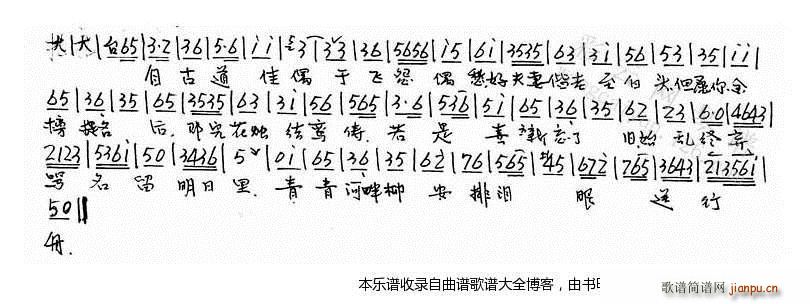 大 | 大 | 台 65 | 3·2 | 36 | 5·6 | i i | 3 33 | 36 | 5656 | i5 | 6i | 3535 | 63 | 3i | 56 | 53 | 35 | i i |
自古道佳偶于飞 偶 好夫妻偕老至白头但愿你金
65 | 36 | 35 | 65 | 3535 | 63 | 3i | 56 | 565 | 3·6 | 536 | 5i | 65 | 36 | 35 | 62 | 23 | 6·0 | 4643 |
榜提名后, 那 花烛结鸾俦. 若是喜新忘了旧 乱终弃
2123 | 536i | 50 | 3436 | 5 | 0i | 65 | 36 | 35 | 62 | 76 | 565 | 45 | 672 | 765 | 3643 | 213561 |
骂名留明日里. 青青河畔柳安排泪眼送行
50 ||
舟.
本乐谱收录自曲谱歌谱大全博客，由书
歌谱简谱网
jianpu.cn